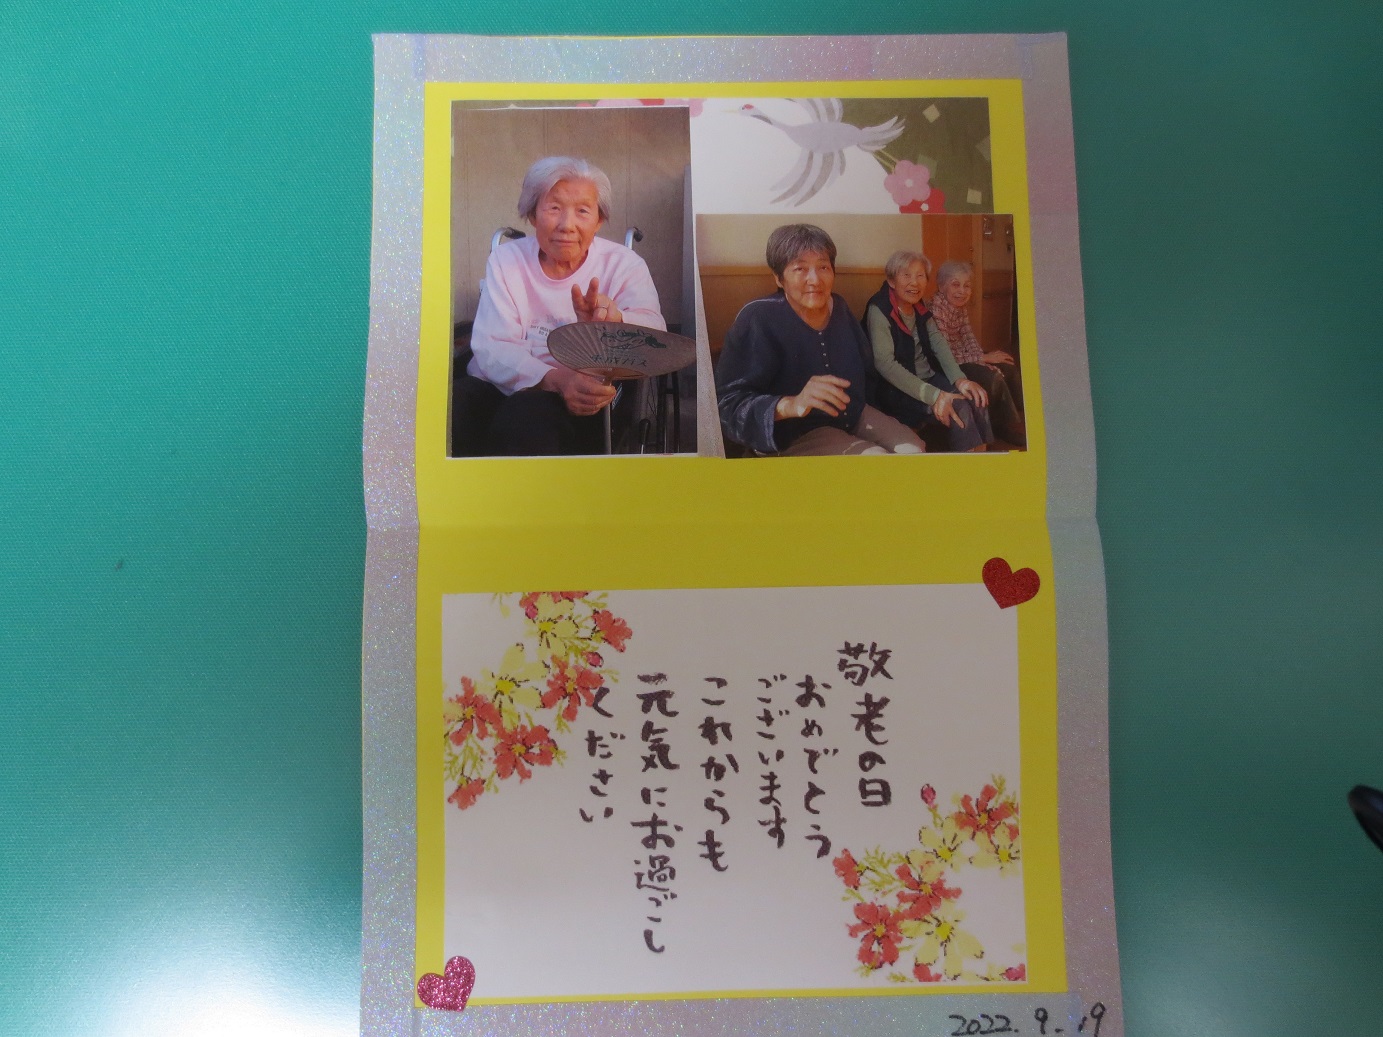 敬老の日
おめでとう
ございます
これからも
元気にお過ごし
ください
2022.9.19